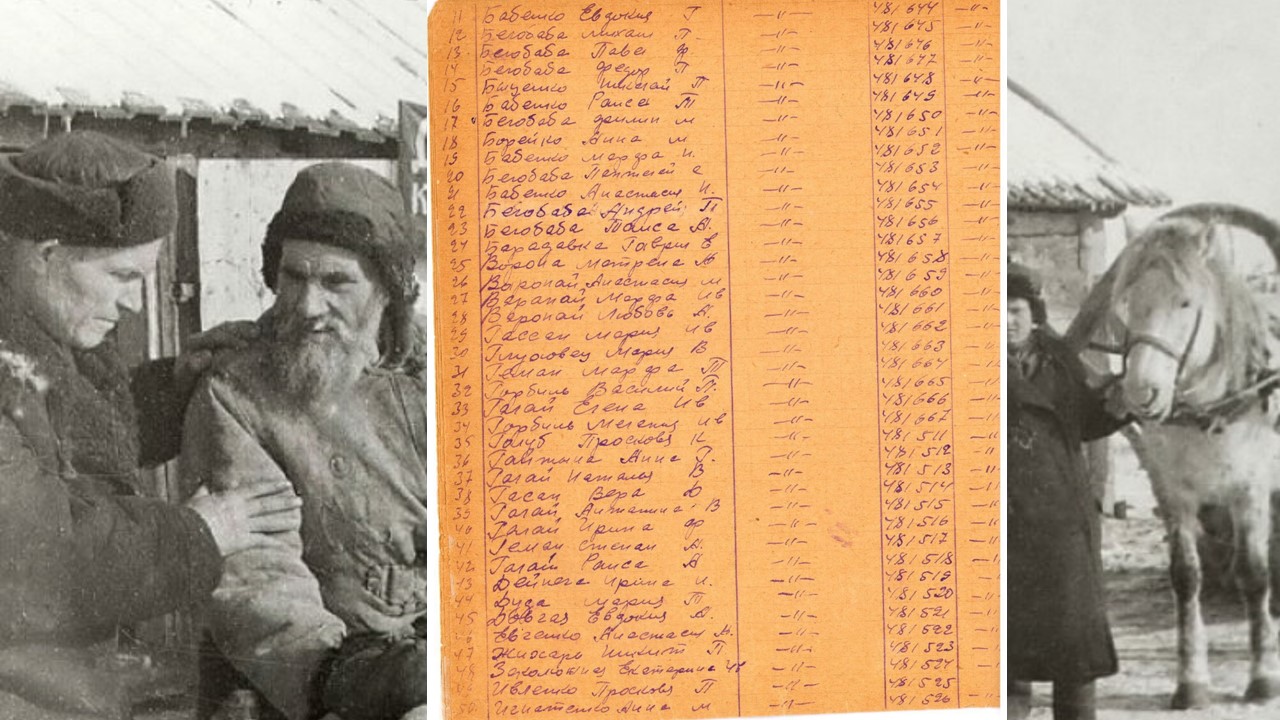 11 Бабенко Евдокия Г —〃— 481644 —〃—
12 Белобаба Михаил П —〃— 481645 —〃—
13 Белобаба Павел Ф —〃— 481646 —〃—
14 Белобаба Федор П —〃— 481647 —〃—
15 Николай П —〃— 481648 —〃—
16 Бабенко Раиса Т —〃— 481649 —〃—
17 Белобаба м —〃— 481650 —〃—
18 Борейко Анна м —〃— 481651 —〃—
19 Бабенко Марфа И. —〃— 481652 —〃—
20 Белобаба Пантелей с —〃— 481653 —〃—
21 Бабенко Анастасия И. —〃— 481654 —〃—
22 Белобаба Андрей П —〃— 481655 —〃—
23 Белобаба Таиса А. —〃— 481656 —〃—
24 Бараддавка Гаврил Е —〃— 481657 —〃—
25 Ворона Матрена А —〃— 481658 —〃—
26 Варонай Анастасия м —〃— 481659 —〃—
27 Варанай Марфа Ив —〃— 481660 —〃—
28 Варонай Любовь А. —〃— 481661 —〃—
29 Гассан мария Ив —〃— 481662 —〃—
30 Мария В —〃— 481663 —〃—
31 Геман Марфа Т —〃— 481664 —〃—
32 Горбиль Василий П. —〃— 481665 —〃—
33 Гагай Елена Ив —〃— 481666 —〃—
34 Горбиль Мелания Ив —〃— 481667 —〃—
35 Голуб Просковя К —〃— 481511 —〃—
36 Анна Г. —〃— 481512 —〃—
37 Гагай Наталья В —〃— 481513 —〃—
38 Гасан Вера Ф —〃— 481514 —〃—
39 Гагай Антанина В —〃— 481515 —〃—
40 Гагай Ирина Ф —〃— 481516 —〃—
41 Геман Степан А. —〃— 481517 —〃—
42 Гагай Раиса А —〃— 481518 —〃—
43 Дейнега Ирина И. —〃— 481519 —〃—
44 Дуда Мария Т —〃— 481520 —〃—
45 Довгаз Евдокия А. —〃— 481521 —〃—
46 Евгенко Анастасия А. —〃— 481522 —〃—
47 Никит П —〃— 481523 —〃—
48 Екатерина —〃— 481524 —〃—
49 Ивленко Просковя П —〃— 481525 —〃—
50 Игнатенко Анна м —〃— 481526 —〃—